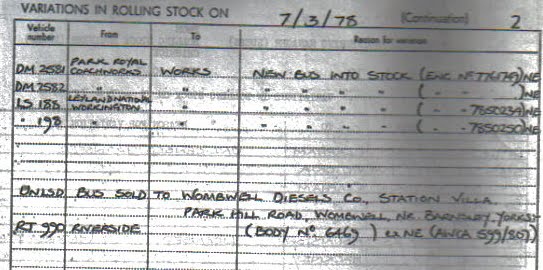 VARIATIONS IN ROLLING STOCK ON 7/3/78 (Continuation) 2
Vehicle number From To Reason for variation
DM 2581 PARK ROYAL COACHWORKS WORKS NEW BUS INTO STOCK (ENG Nº 776179) NE
DM 2582 " " " " " " ( " ) NE
LS 188 LEYLAND NATIONAL WORKINGTON " " " " " ( " - 7850234) NE
" 198 " " " " " " ( " - 7850250) NE
UNLSD BUS SOLD TO WOMBWELL DIESELS CO., STATION VILLA,
PARK HILL ROAD, WOMBWELL, NR. BARNSLEY, YORKS:
RT 990 RIVERSIDE (BODY Nº 6469) ex NE (AWCA 599/807)